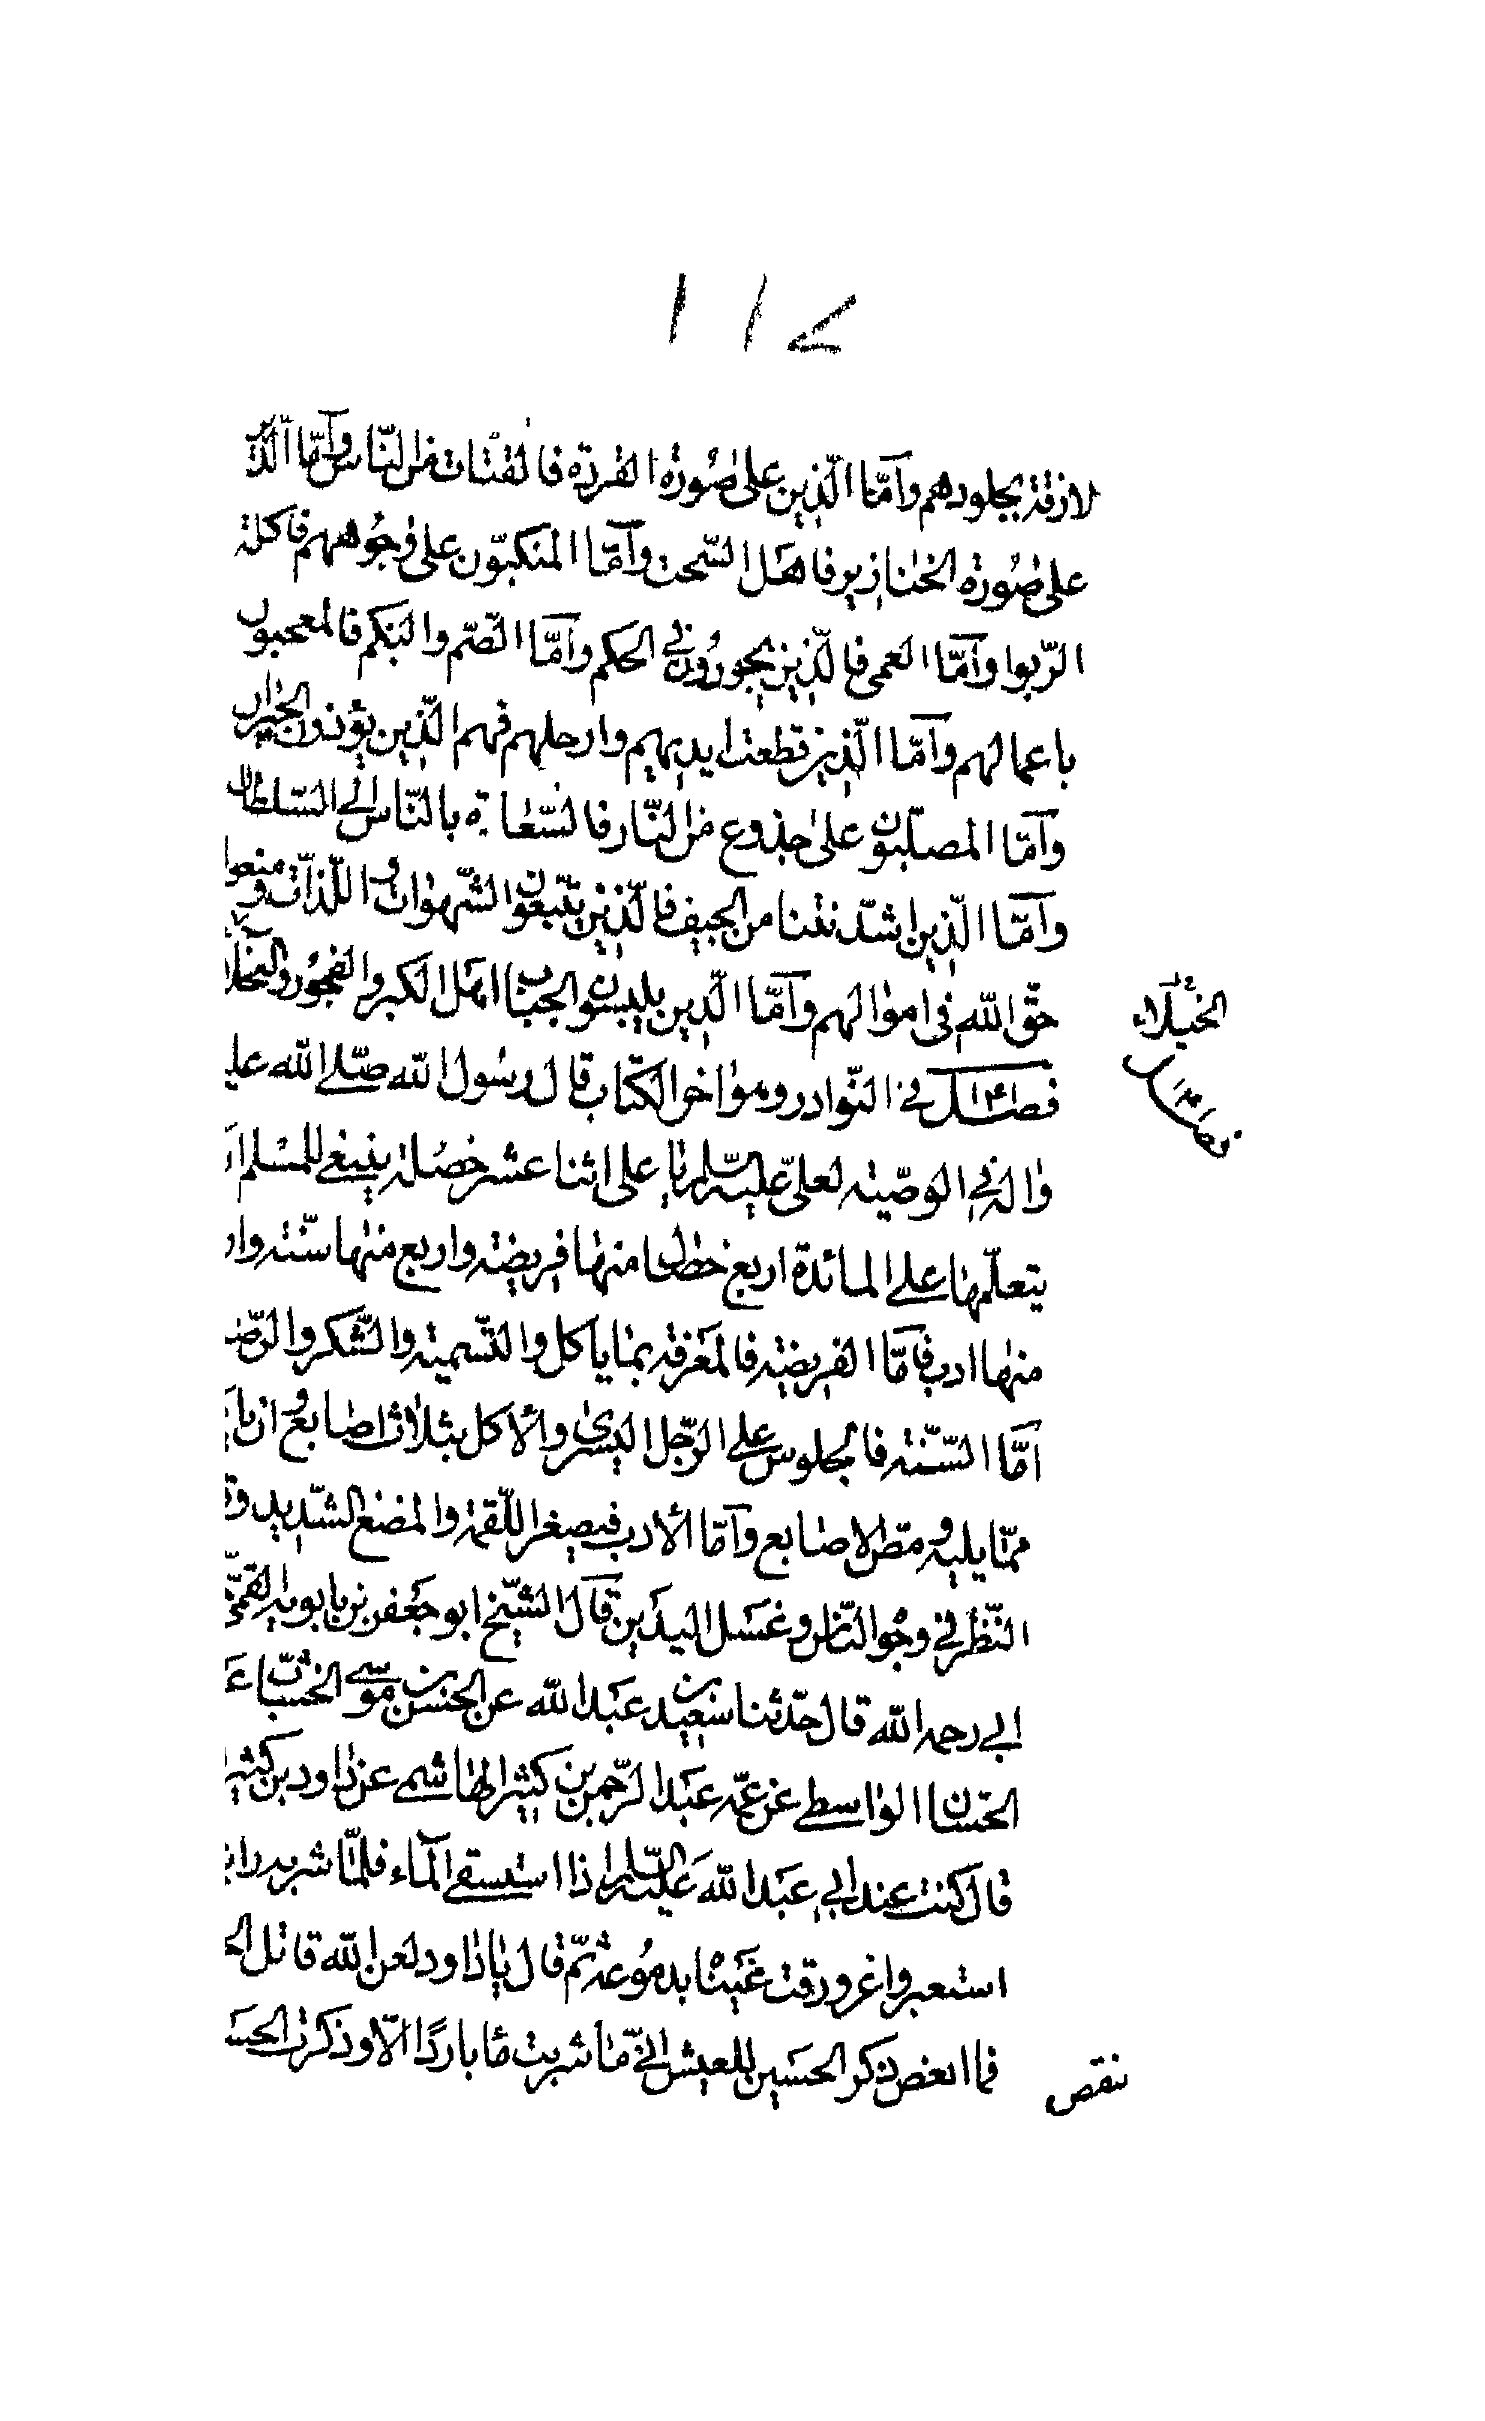 لازقة بجلودهم وأمّا الّذين على صورة القردة فالقتات من النّاس وأمّا الّذين
على صورة الخنازير فاهل السّحت وأمّا المنكبّون على وجوههم فاكلة
الرّبوا وأمّا العمى فالّذين يجورون في الحكم وأمّا الصّم والبكم فالمعجبون
باعمالهم وأمّا الّذين قطعت ايديهم وارجلهم فهم الّذين يؤذون الجيران
وأمّا المصلّبون على جذوع من النّار فالسّعاة بالنّاس الى السّلطان
وأمّا الّذين اشدّ نتنا من الجيف فالّذين يتّبعون الشّهوات و اللّذات و منعوا
حقّ الله في اموالهم وأمّا الّذين يلبسون الجباب اهل الكبر والفجور والبخلاء
الخيلاء
فصل ١٤١ في النّوادر وهو اخر الكتاب قال رسول الله صلّى الله علي
فصل ١٤١
واله في الوصيّة لعلىّ عليه السّلم يا على اثنا عشر خصلة ينبغى للمسلم ان
يتعلّمها على المائدة اربع خصال منها فريضة واربع منها سنّة وار
منها ادب فأمّا الفريضة فالمعرفة بما يأكل والتّسمية والشّكر والرّضا
أمّا السّنّة فالجلوس على الرّجل اليسرى والأكل بثلاث اصابع و ان يا
ممّا يليه و مصّ الاصابع وأمّا الأدب فيصغر اللّقمة والمضغ الشّديد وق
النّظر في وجوه النّاس وغسل اليدين قال الشّيخ ابو جعفر بن بابويه القمىّ
ابي رحمه الله قال حدّثنا سعيد بن عبد الله عن الحسن بن موسى الخشّاب ع
الحسان الواسطى عن عمّه عبد الرّحمن بن كثير الهاشمى عن داود بن كثير
قال كنت عند ابي عبد الله عليه السّلم اذا استسقى الماء فلمّا شربه راي
استعبر واغرورقت عيناه بدموعه ثمّ قال يا داود لعن الله قاتل الح
فما انغص ذكر الحسين للعيش انّي ما شربت ماء باردًا الّا وذكرت الحس
ننقص